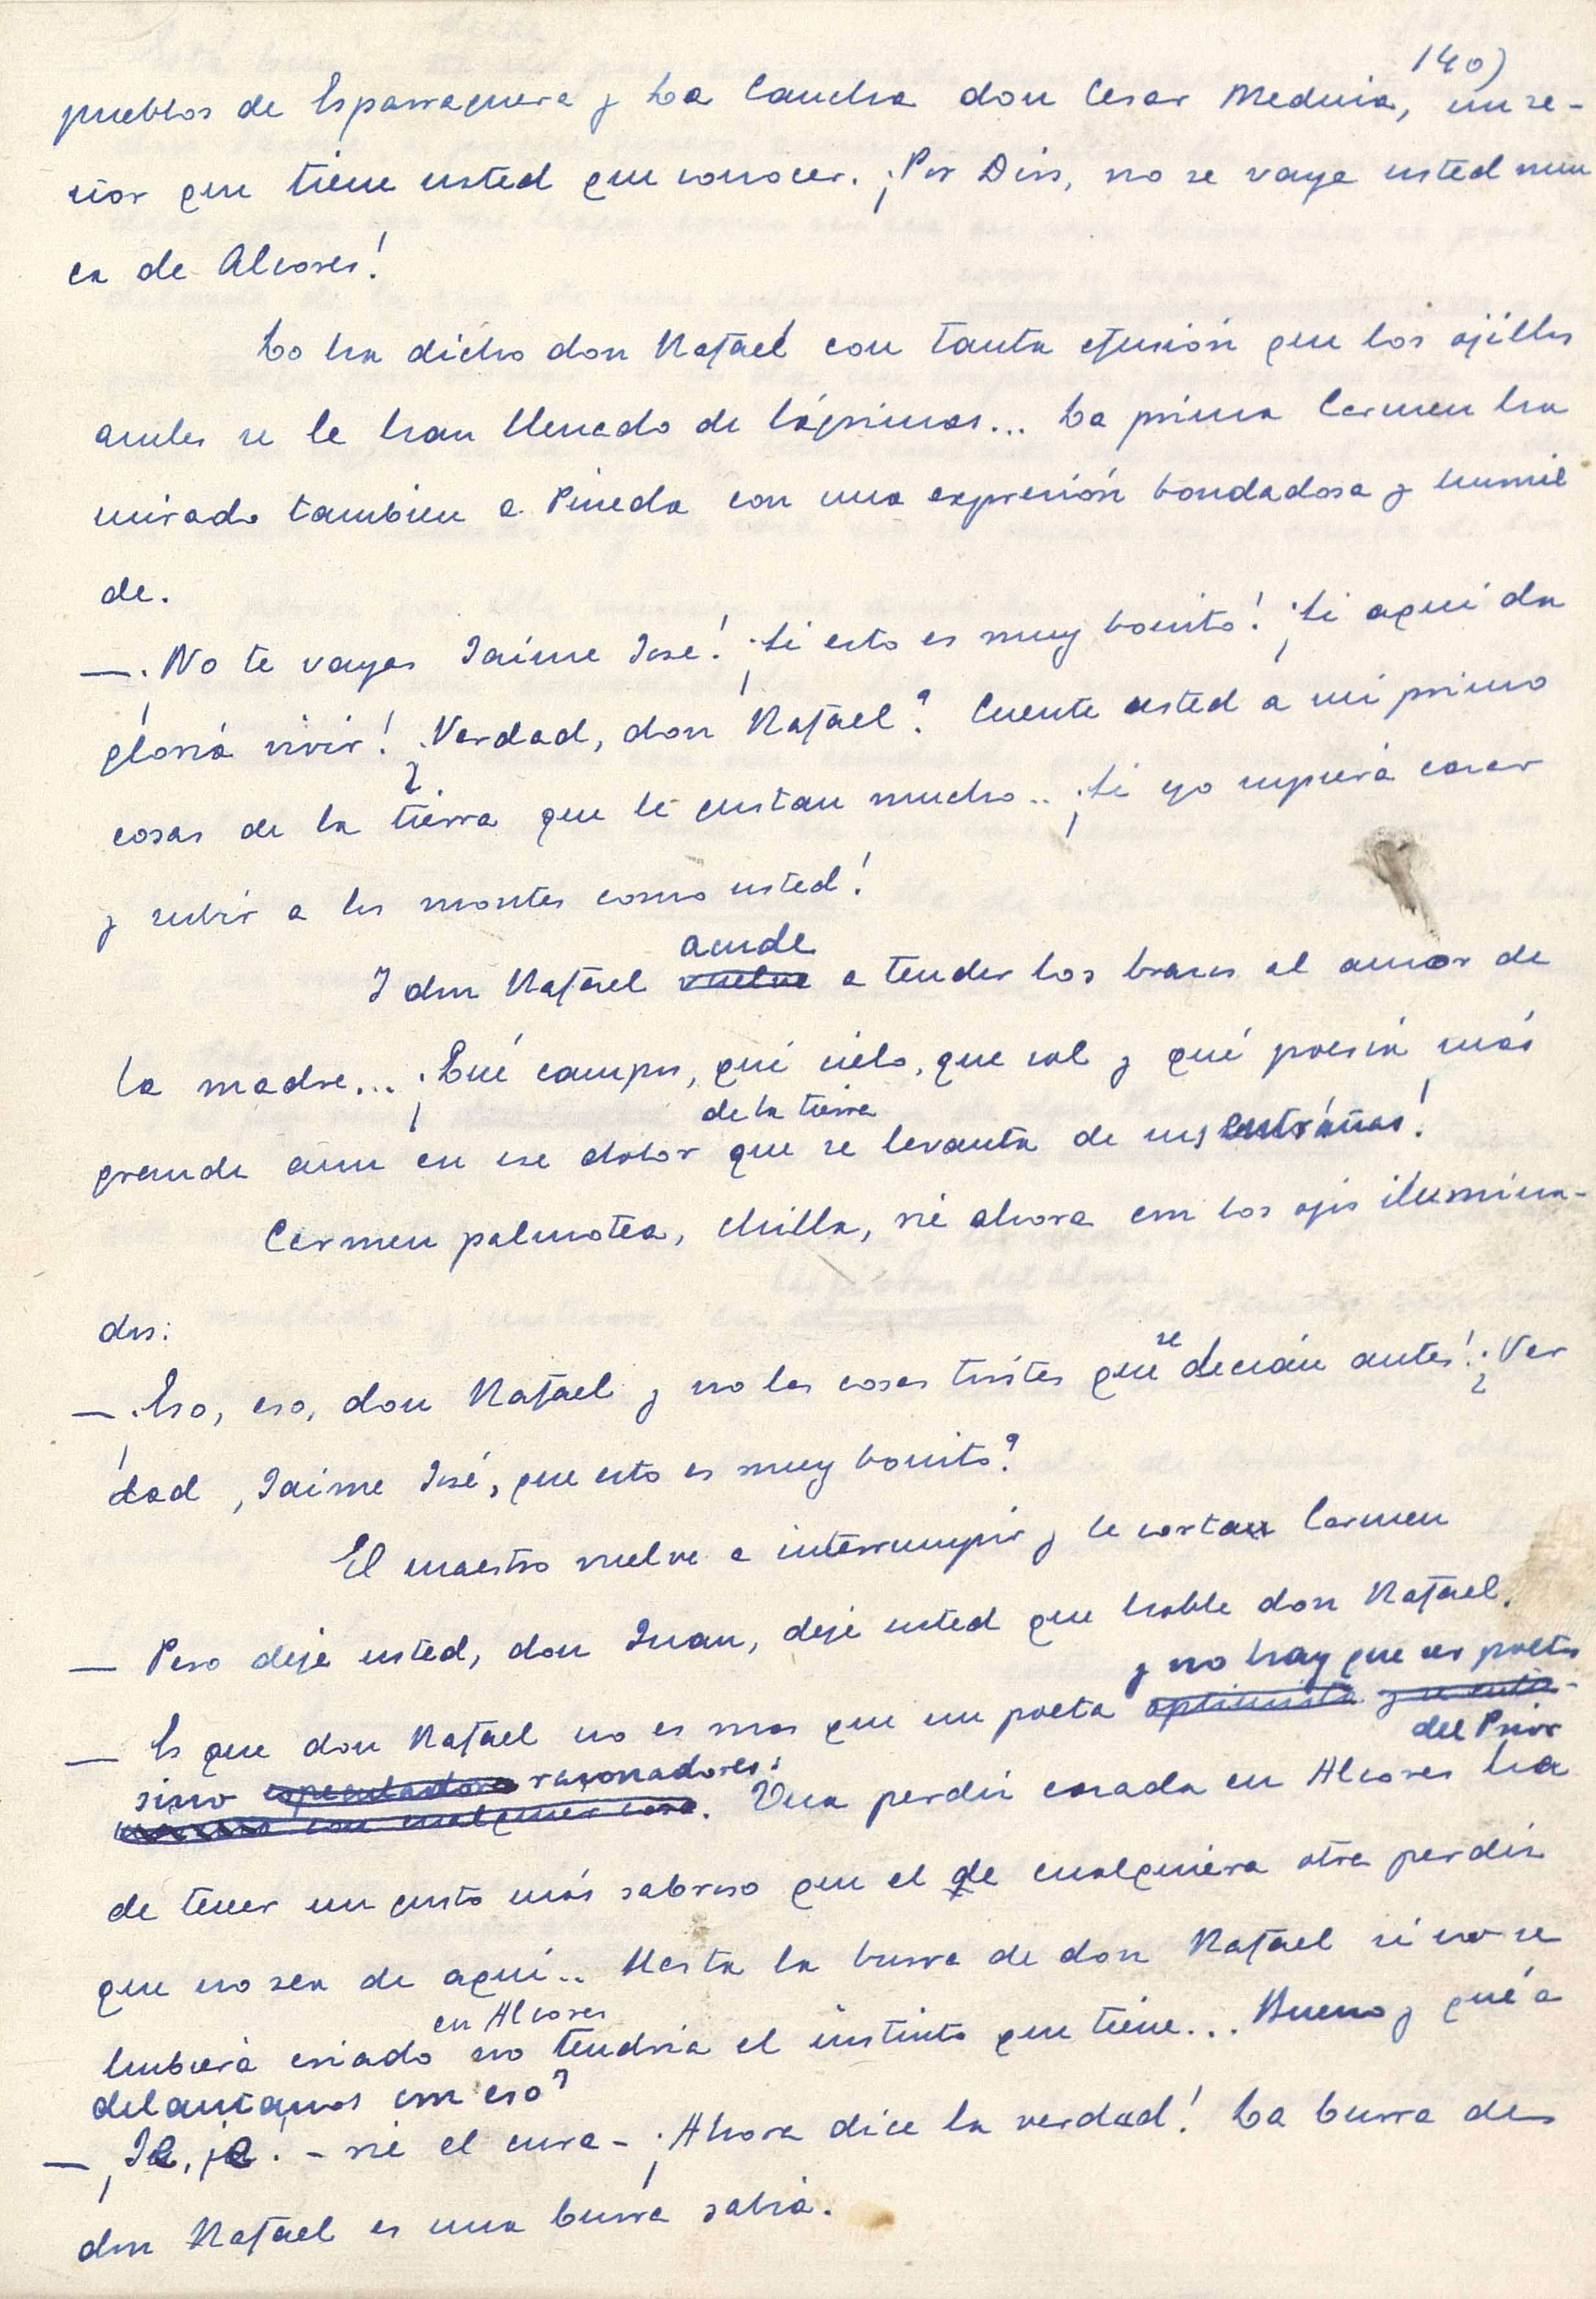 140)
pueblos de Esparraguera y La Caucha don Cesar Medina, un se-
ñor que tiene usted que conocer. ¡Por Dios, no se vaya usted nun
ca de Alcores!
Lo ha dicho don Rafael con tanta efusión que los ojillos
azules se le han llenado de lágrimas... La prima Carmen ha
mirado tambien a Pineda con una expresión bondadosa y humil
de.
— ¡No te vayas Jaime José! ¡Si esto es muy bonito! ¡Si aqui da
gloria vivir! ¿Verdad, don Rafael? Cuente usted a mi primo
cosas de la tierra que le gustan mucho.. ¡Si yo supiera cazar
y subir a los montes como usted!
acude
Y don Rafael vuelve a tender los brazos al amor de
la madre... ¡Qué campos, qué cielo, que sol y qué poesia más
de la tierra
grande aun en ese dolor que se levanta de sus entrañas!
Carmen palmotea, chilla, rie ahora con los ojos ilumina-
dos:
se
— ¡Eso, eso, don Rafael y no las cosas tristes que decian antes! ¿Ver
dad, Jaime José, que esto es muy bonito?
El maestro vuelve a interrumpir y le cortan Carmen
— Pero deje usted, don Juan, deje usted que hable don Rafael.
y no hay que ser poetas
— Es que don Rafael no es mas que un poeta optimista y se entu-
del Prior
sino especuladores razonadores:
con cualquier cosa. Una perdiz cazada en Alcores ha
de tener un gusto más sabroso que el de cualquiera otra perdiz
que no sea de aqui.. Hasta la burra de don Rafael si no se
en Alcores
hubiera criado no tendria el instinto que tiene... Bueno y qué a
delantamos con eso?
— ¡Ja, ja! - rie el cura - ¡Ahora dice la verdad! La burra de
don Rafael es una burra sabia.